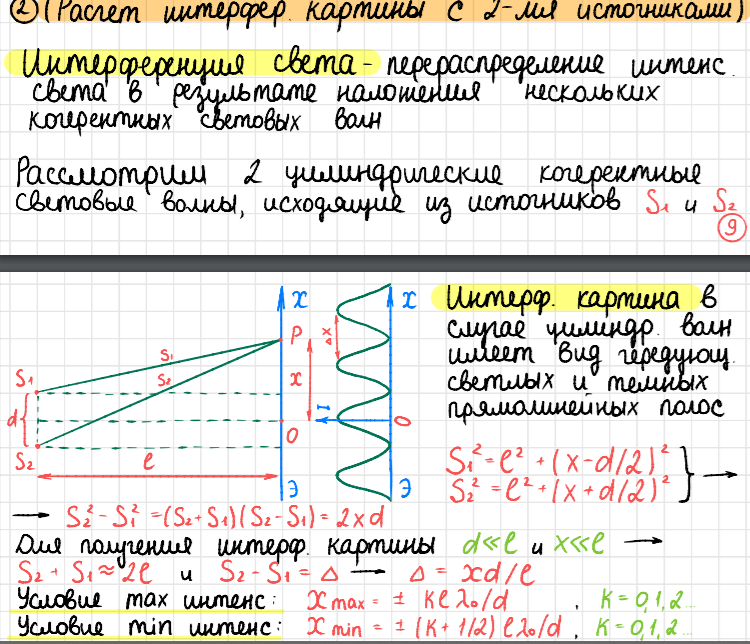 ② (Расчет интерфер. картины с 2-мя источниками)
Интерференция света - перераспределение интенс.
света в результате наложения нескольких
когерентных световых волн
Рассмотрим 2 цилиндрические когерентные
световые волны, исходящие из источников S₁ и S₂
9
x
P
S₁
S₂
x
S₁
d
S₂
O
l
Э
x
Δx
I
O
Э
Интерф. картина в
случае цилиндр. волн
имеет вид чередующ.
светлых и темных
прямолинейных полос
S₁² = l² + (x-d/2)²
S₂² = l² + (x+d/2)² } →
→ S₂² - S₁² = (S₂+S₁)(S₂-S₁) = 2xd
Для получения интерф. картины d≪l и x≪l →
S₂ + S₁ ≈ 2l и S₂ - S₁ = Δ → Δ = xd/l
Условие max интенс: x max = ± klλ₀/d , k = 0,1,2...
Условие min интенс: x min = ± (k + 1/2) lλ₀/d , k = 0,1,2...